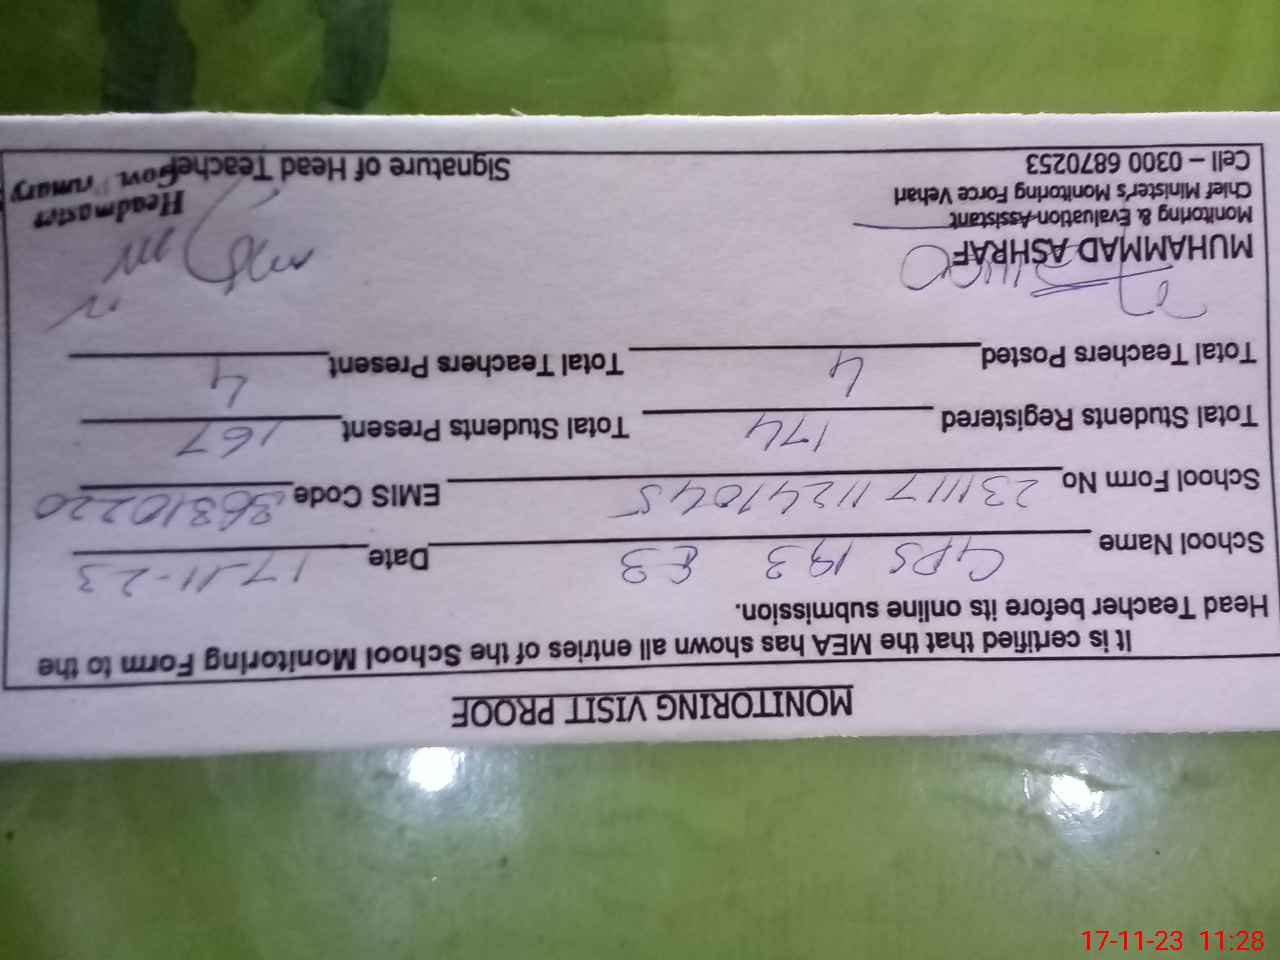 MONITORING VISIT PROOF
It is certified that the MEA has shown all entries of the School Monitoring Form to the
Head Teacher before its online submission.
School Name GPS 193 EB Date 17-11-23
School Form No 23111711241045 EMIS Code 36310220
Total Students Registered 174 Total Students Present 167
Total Teachers Posted 4 Total Teachers Present 4
MUHAMMAD ASHRAF
Monitoring & Evaluation Assistant
Chief Minister's Monitoring Force Vehari
Cell – 0300 6870253
Signature of Head Teacher
Headmaster
Govt.
17-11-23 11:28